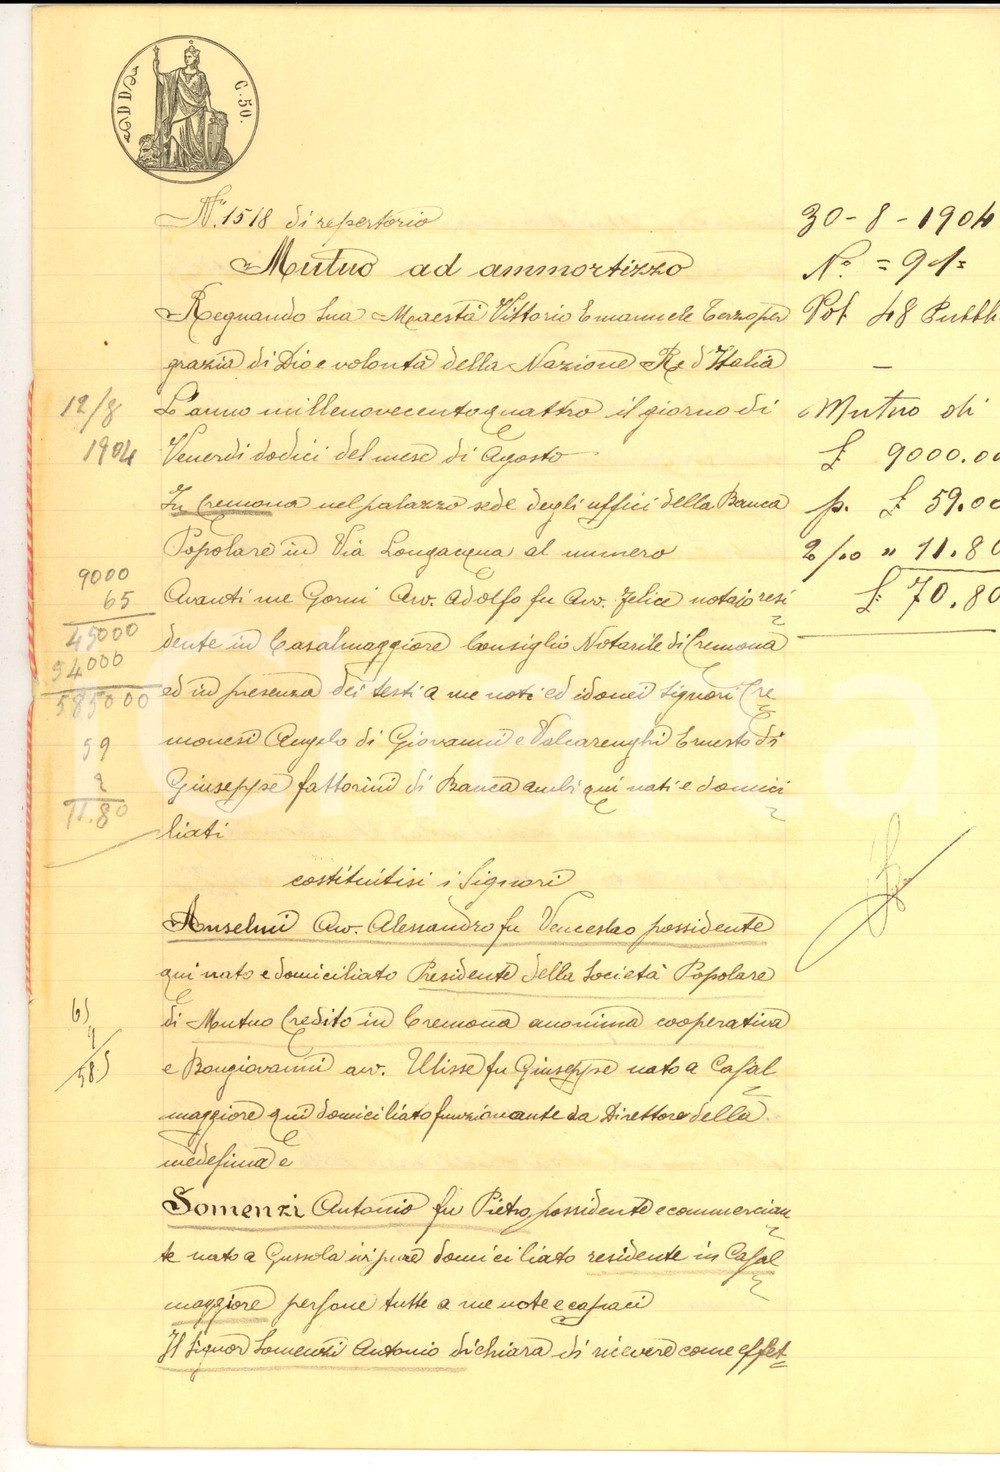 C. 50.
N.º 1518 di repertorio
Mutuo ad ammortizzo
Regnando Sua Maestà Vittorio Emanuele Terzo per
grazia di Dio e volontà della Nazione Re d'Italia
L'anno millenovecentoquattro il giorno di
Venerdi dodici del mese di Agosto
In Cremona nel palazzo sede degli uffici della Banca
Popolare in Via Longacqua al numero
Avanti me Gorni Avv. Adolfo fu Avv. Felice notaio resi
dente in Casalmaggiore Consiglio Notarile di Cremona
ed in presenza dei testi a me noti ed idonei Signori Cre
monesi Angelo di Giovanni e Valcarenghi Ernesto di
Giuseppe fattorini di Banca ambi qui nati e domici
liati
costituitisi i Signori
Anselmi Avv. Alessandro fu Venceslao possidente
qui nato e domiciliato Presidente della Società Popolare
di Mutuo Credito in Cremona anonima cooperativa
e Bongiovanni avv. Ulisse fu Giuseppe nato a Casal
maggiore qui domiciliato funzionante da Direttore della
medesima e
Somenzi Antonio fu Pietro possidente e commercian
te nato a Gussola ivi pure domiciliato residente in Casal
maggiore persone tutte a me note e capaci
Il Signor Somenzi Antonio dichiara di ricevere come effet=
12/8
1904
9000
65
45000
54000
585000
59
2
11.80
65
9
585
30-8-1904
N.º = 91=
Vol 48 Pubbl
Mutuo di
£ 9000.00
p. £ 59.00
2/10 " 11.80
£ 70.80